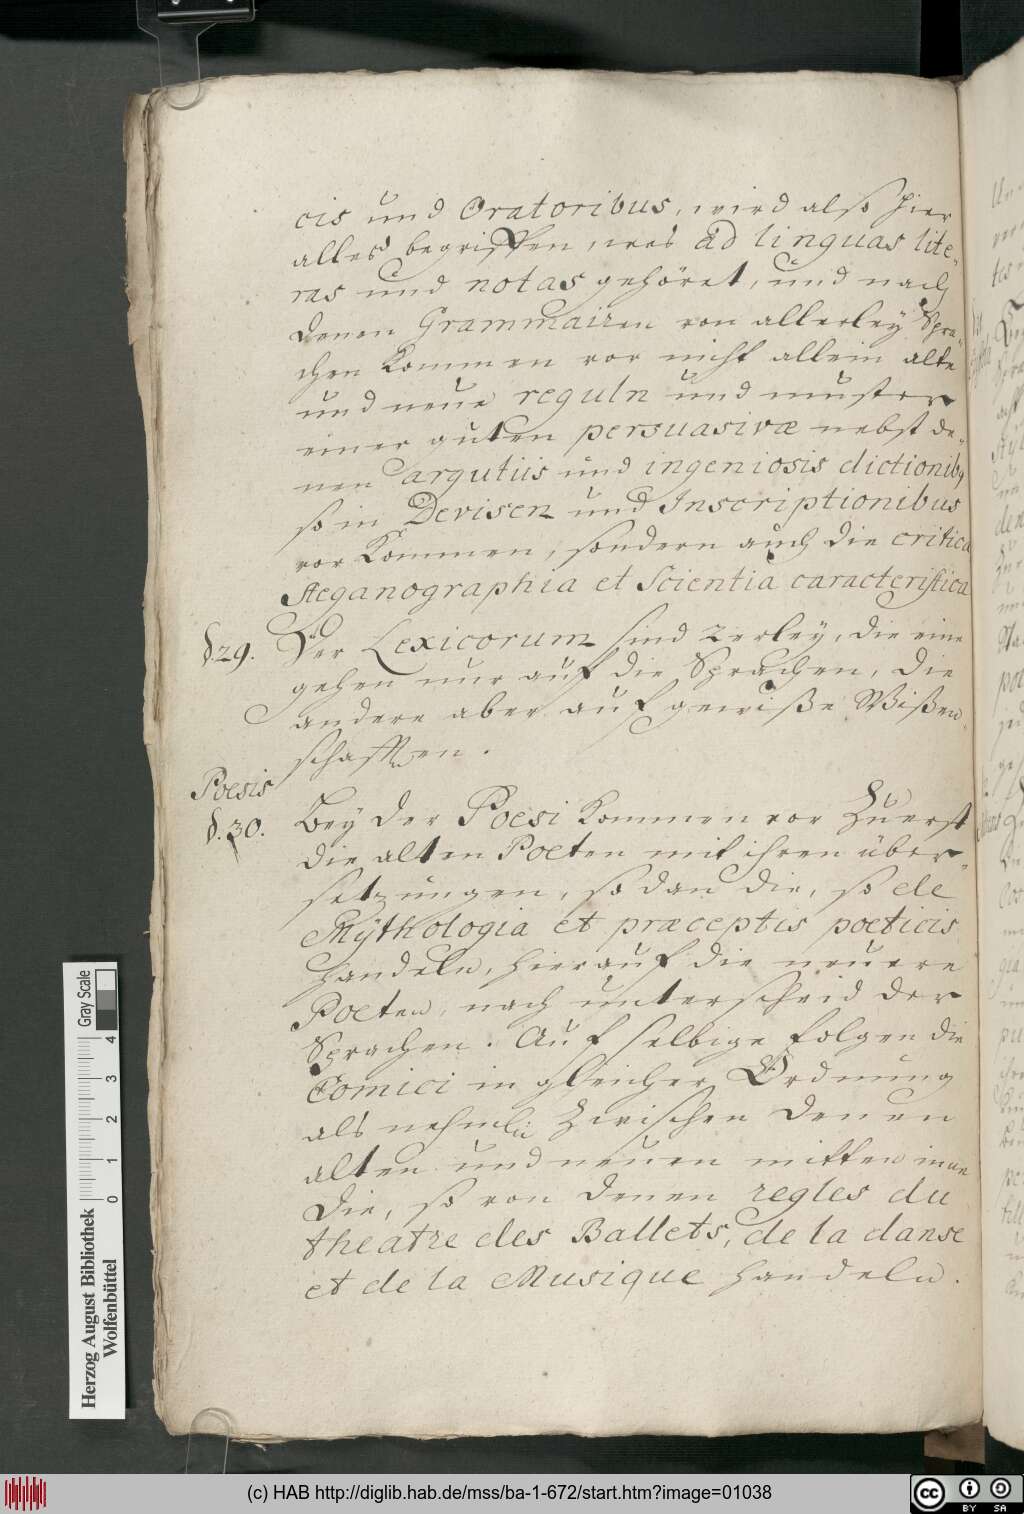 cis und Oratoribus, wird also hier
alles begriffen, was ad linguas lite-
ras und notas gehöret, und nach
denen Grammairen von allerley Spra-
chen kommen vor nicht allein alte
und neue reguln und muster
einer guten persuasivæ nebst de-
nen argutiis und ingeniosis dictionib9
so in Devisen und Inscriptionibus
vor kommen, sondern auch die critica
steganographia et Scientia caracteristica
§.29. Der Lexicorum sind 2erley, die eine
gehen nur auf die Sprachen, die
andere aber auf gewiße Wißen-
schafften.
Poesis
§.30. Bey der Poesi kommen vor Zuerst
die alten Poeten mit ihren über-
setzungen, so dan die, so de
Mÿthologia et præceptis poeticis
handeln, hierauf die neuere
Poeten, nach unterscheid der
Sprachen. Auf selbige folgen die
Comici in gleicher Ordnung
als nehmli zwischen denen
alten und neuen mitten inne
die, so von denen regles du
theatre des Ballets, de la danse
et de la Musique handeln.
Gray Scale
0 1 2 3 4
Herzog August Bibliothek
Wolfenbüttel
(c) HAB http://diglib.hab.de/mss/ba-1-672/start.htm?image=01038
cc BY SA